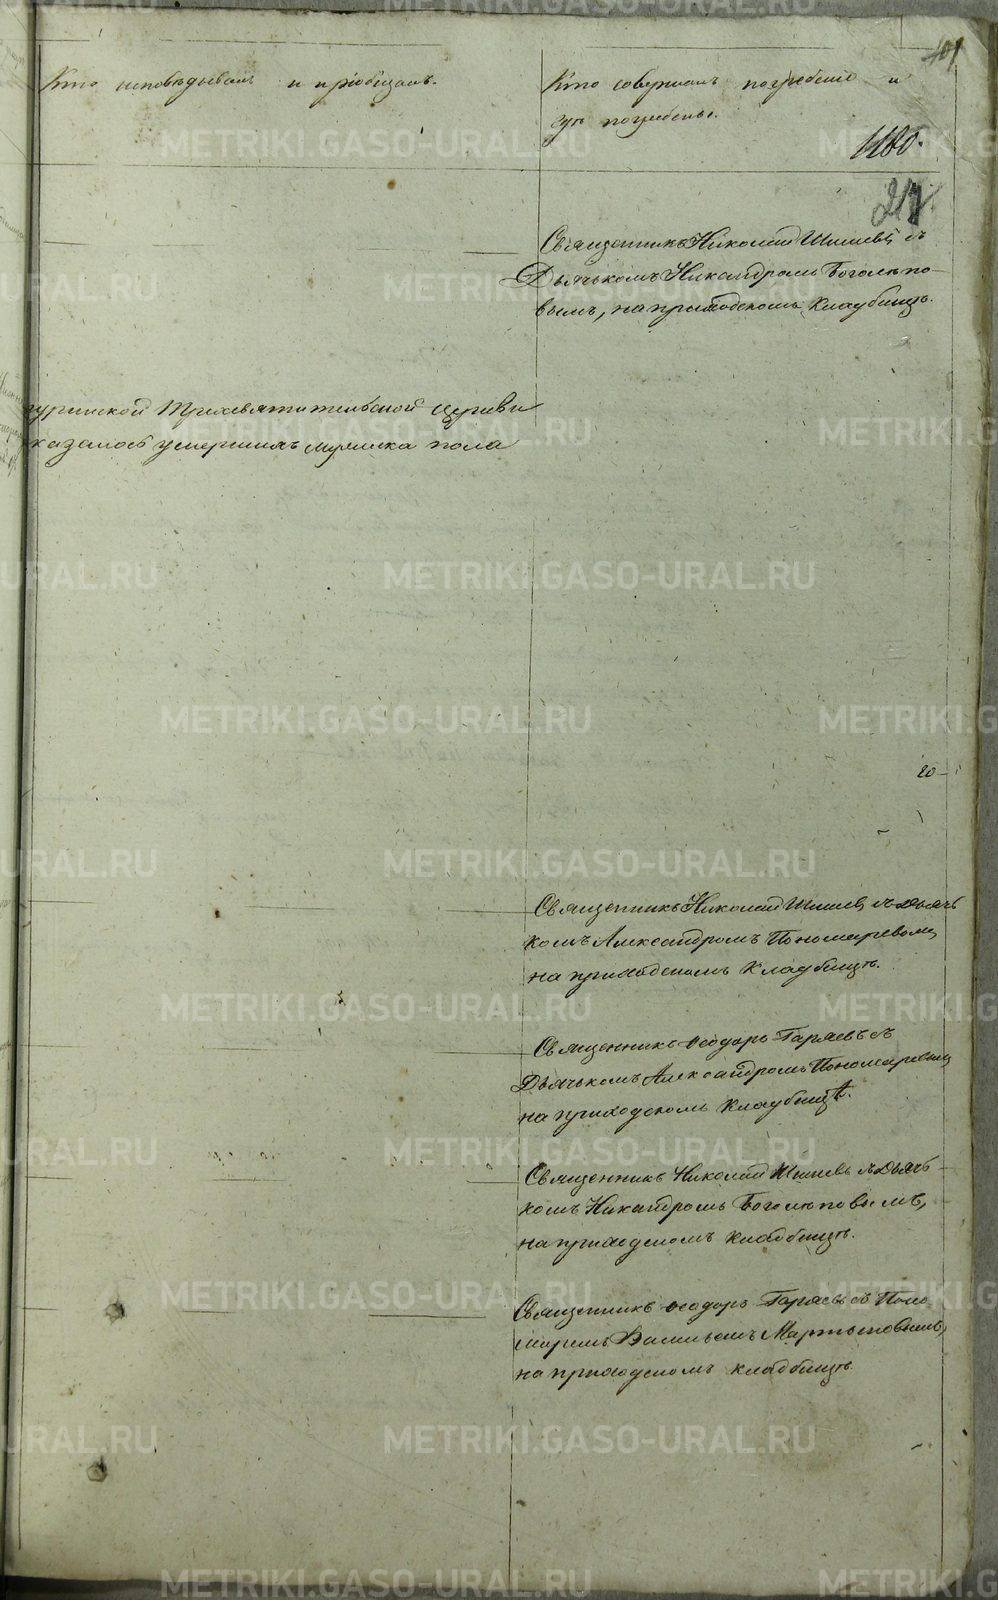 401
Кто исповѣдывалъ и пріобщалъ.
Кто совершалъ погребеніе и
гдѣ погребены.
1180.
217
Священникъ Николай Шишевъ съ
Дьячькомъ Никандромъ Боголѣпо-
вымъ, на приходскомъ кладбищѣ.
туринской Трехсвятительской церкви
казалось умершихъ мужска пола
20
Священникъ Николай Шишевъ съ Дьячь
комъ Александромъ Пономаревымъ,
на приходскомъ кладбищѣ.
Священникъ Ѳеодоръ Гаряевъ съ
Дьячькомъ Александромъ Пономаревымъ
на приходскомъ кладбищѣ.
Священникъ Николай Шишевъ съ Дьячь
комъ Никандромъ Боголѣповымъ,
на приходскомъ кладбищѣ.
Священникъ Ѳеодоръ Гаряевъ съ Поно-
маремъ Васильемъ Мартыновымъ,
на приходскомъ кладбищѣ.
METRIKI.GASO-URAL.RU